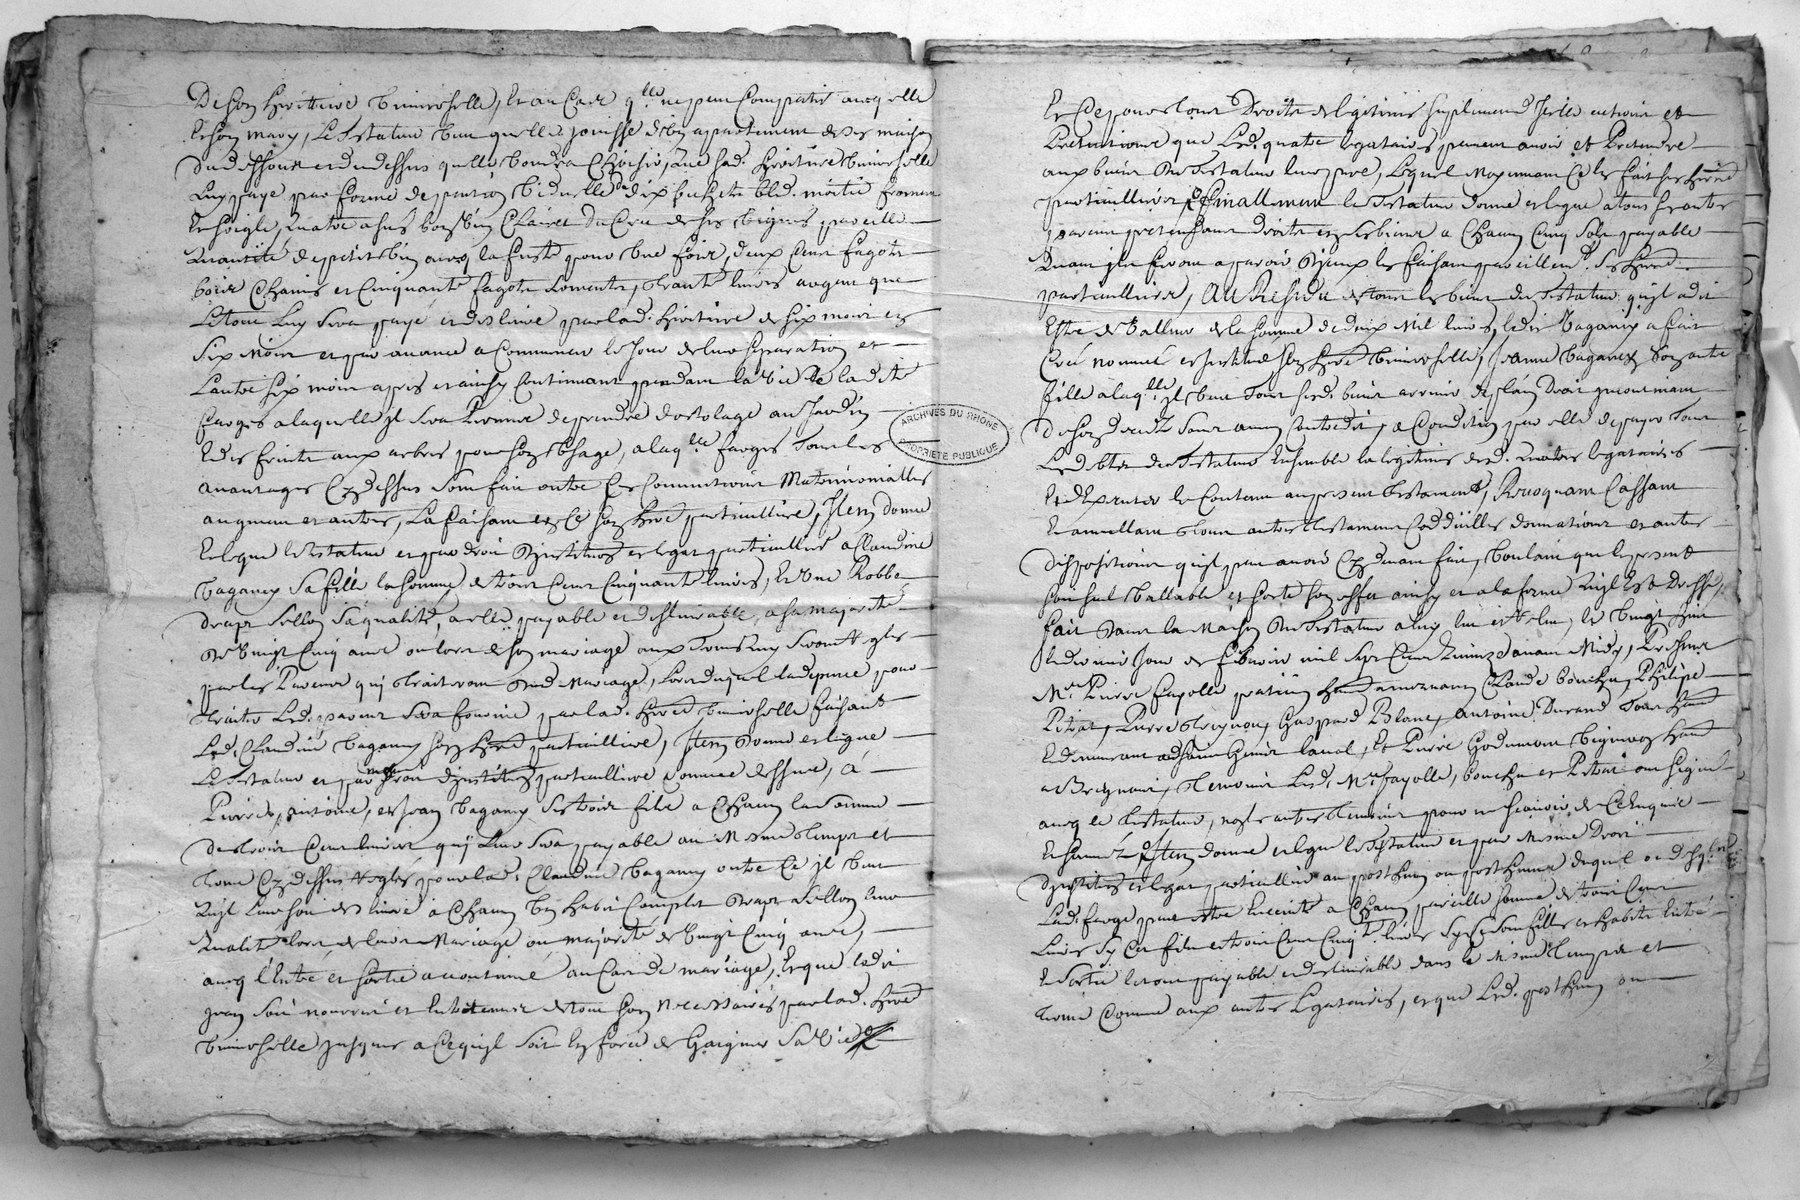 De son heritiere universelle, et au Cas qlle ne peut Compatir avecq elle
et son mary, le testateur veut quelle jouisse d'un appartement de ses maison
du dessous et du dessus quelle voudra Choisir, que sad. heritiere universelle
luy paye par forme de pention viduelle dix bichets bled moitié froment
et soigle, quatre asnés bon vin Clairet du Cru de ses vignes pareille
quantité de petit vin avecq la fuste pour une fois, deux Cent fagots
bois Chaine et Cinquante fagots serments, trante livres argent que
le tout luy sera payé et deslivré par lad. heritiere de six mois en
six mois et par avance a Commencer le jour de leur separation et
l'autre six mois apres et ainsy Continuant pendant la vie de ladite
farges a laquelle jl sera Permis de prendre d'ortolage au Jardin
et des fruits aux arbres pour son usage, a laqlle farges tous les
avantages Cy dessus sont fait outre Ces Conventions Matrimonialles
augment et autres, La faisant en Ce son here particulliere, Item donne
et legue le testateur et par droit d'jnstitution et legat particullier a Claudine
baganey sa fille la somme de trois Cent Cinquante livres, et une Robbe
drapt sellon sa qualité, a elle payable et deslivrable, a sa majorité
de vingt Cinq ans ou lors de son mariage aux termes quy seront reglés
par les Parents quj traiteront dud. Mariage, lors duquel la depence pour
traiter Led. parents sera fournie par lad. herere universelle faisant
Lad. Claudine baganey son herere particulliere, Item donne et legue
le testateur et par mesme droit d'jnstitution particulliere Comme dessus, a
Pierre, Antoine, et Jean baganey ses trois fils a Chacun la somme
de trois Cent livres quj leur sera payable au Mesme temps et
terme Cy dessus reglés pour lad. Claudine baganey outre Ce jl veut
quil leur soit deslivré a Chacun un habit Complet drapt sellon leur
qualité lors de leur Mariage ou majorité de vingt Cinq ans,
avecq l'entré et sortie accoutumé au Cas de mariage, et que ledit
Jean soit nourrit et entretenu de tous son necessaires par lad. herere
universelle jusques a Ce quil soit en force de Gaigner sa vie
Et Ce pour tous Droits de legitime suplement d'icelle actions et
Pretentions que Led. quatre legataires peuvent avoir et Pretendre
aux biens du testateur leur pere, lequel moyennant Ce les fait ses herers
particulliers, Et finallement le testateur donne et legue a tous les autres
parents pretendant droits en ses biens a Chacun Cinq sols payable
quant jls feront aparoir d'jceux les faisant pareillemt ses herers
particulliers, Au Residu de tous les biens du testateur quil a dit
Estre de valleur de la somme de deux mil livres, ledit baganey a fait
Creé nommé et jnstitué son herere universelle, Jeanne baganey son autre
fille a laqlle jl veut tous sesd. biens arriver de plain droit jncontinant
de son deced sans aucun Contredit, a Condition par elle de payer tous
Les debtes du testateur Ensemble la legitime desd. quatres legataires
Et d'Executer le Contenu au present testament, Revoquant Cassant
et annullant tous autres testaments Codicilles donnations et autres
dispositions quil peut avoir Cy devant fait, voulant que le present
soit seul vallable et sorte son effet ainsy et a la forme quil Est Dressé,
fait Dans la Maison du testateur a luy leu et relu, le vingt huit
iesme jour de febvrier mil sept Cent avant Midy, Presents
Me Pierre fayolle praticien Claude bouchu, Philipe
Pitiot, Pierre treynou, Gaspard Blanc, Antoine Durand tous habt
Et demeurant a Saint Genis laval, Et Pierre Godumont vigneron habt
a Brignais, temoins Lesd. Me fayolle, bouchu et Pitiot ont signé
avecq le testateur, non les autres temoins pour ne scavoir de Ce Enquis
et sommés Item donne et legue le testateur et par mesme Droit
d'jnstitution et legat particullier au posthum ou posthume duquel ou desqls
Lad. farge peut estre Enceinte a Chacun pareille somme de trois Cent
Livres sy Ces fils et trois Cent Cinqte livres sy Ce sont filles et habits Entré
et sortie le tout payable et deslivrable dans le Mesme temps et
terme Comme aux autres Legataires, et que Led. posthum ou
ARCHIVES DU RHONE
PROPRIETE PUBLIQUE